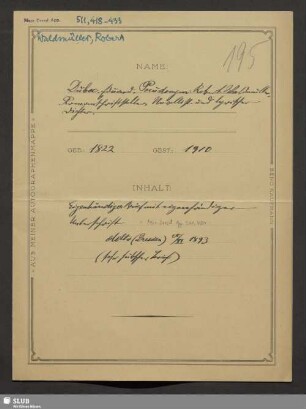 Mscr. Dresd. App. 511, 418-433
Waldmüller, Robert
195
NAME:
Duboc, Eduard. Pseudonym Robert Waldmüller
Romanschriftsteller, Novellist und lyrischer
Dichter.
GEB: 1822 GEST: 1910
INHALT:
Eigenhändiger Brief mit eigenhändiger
Unterschrift
(Dresden) 1893
(sehr hübscher Brief)
«AUS MEINER AUTOGRAPHENMAPPE»
SLUB
Wir führen Wissen.